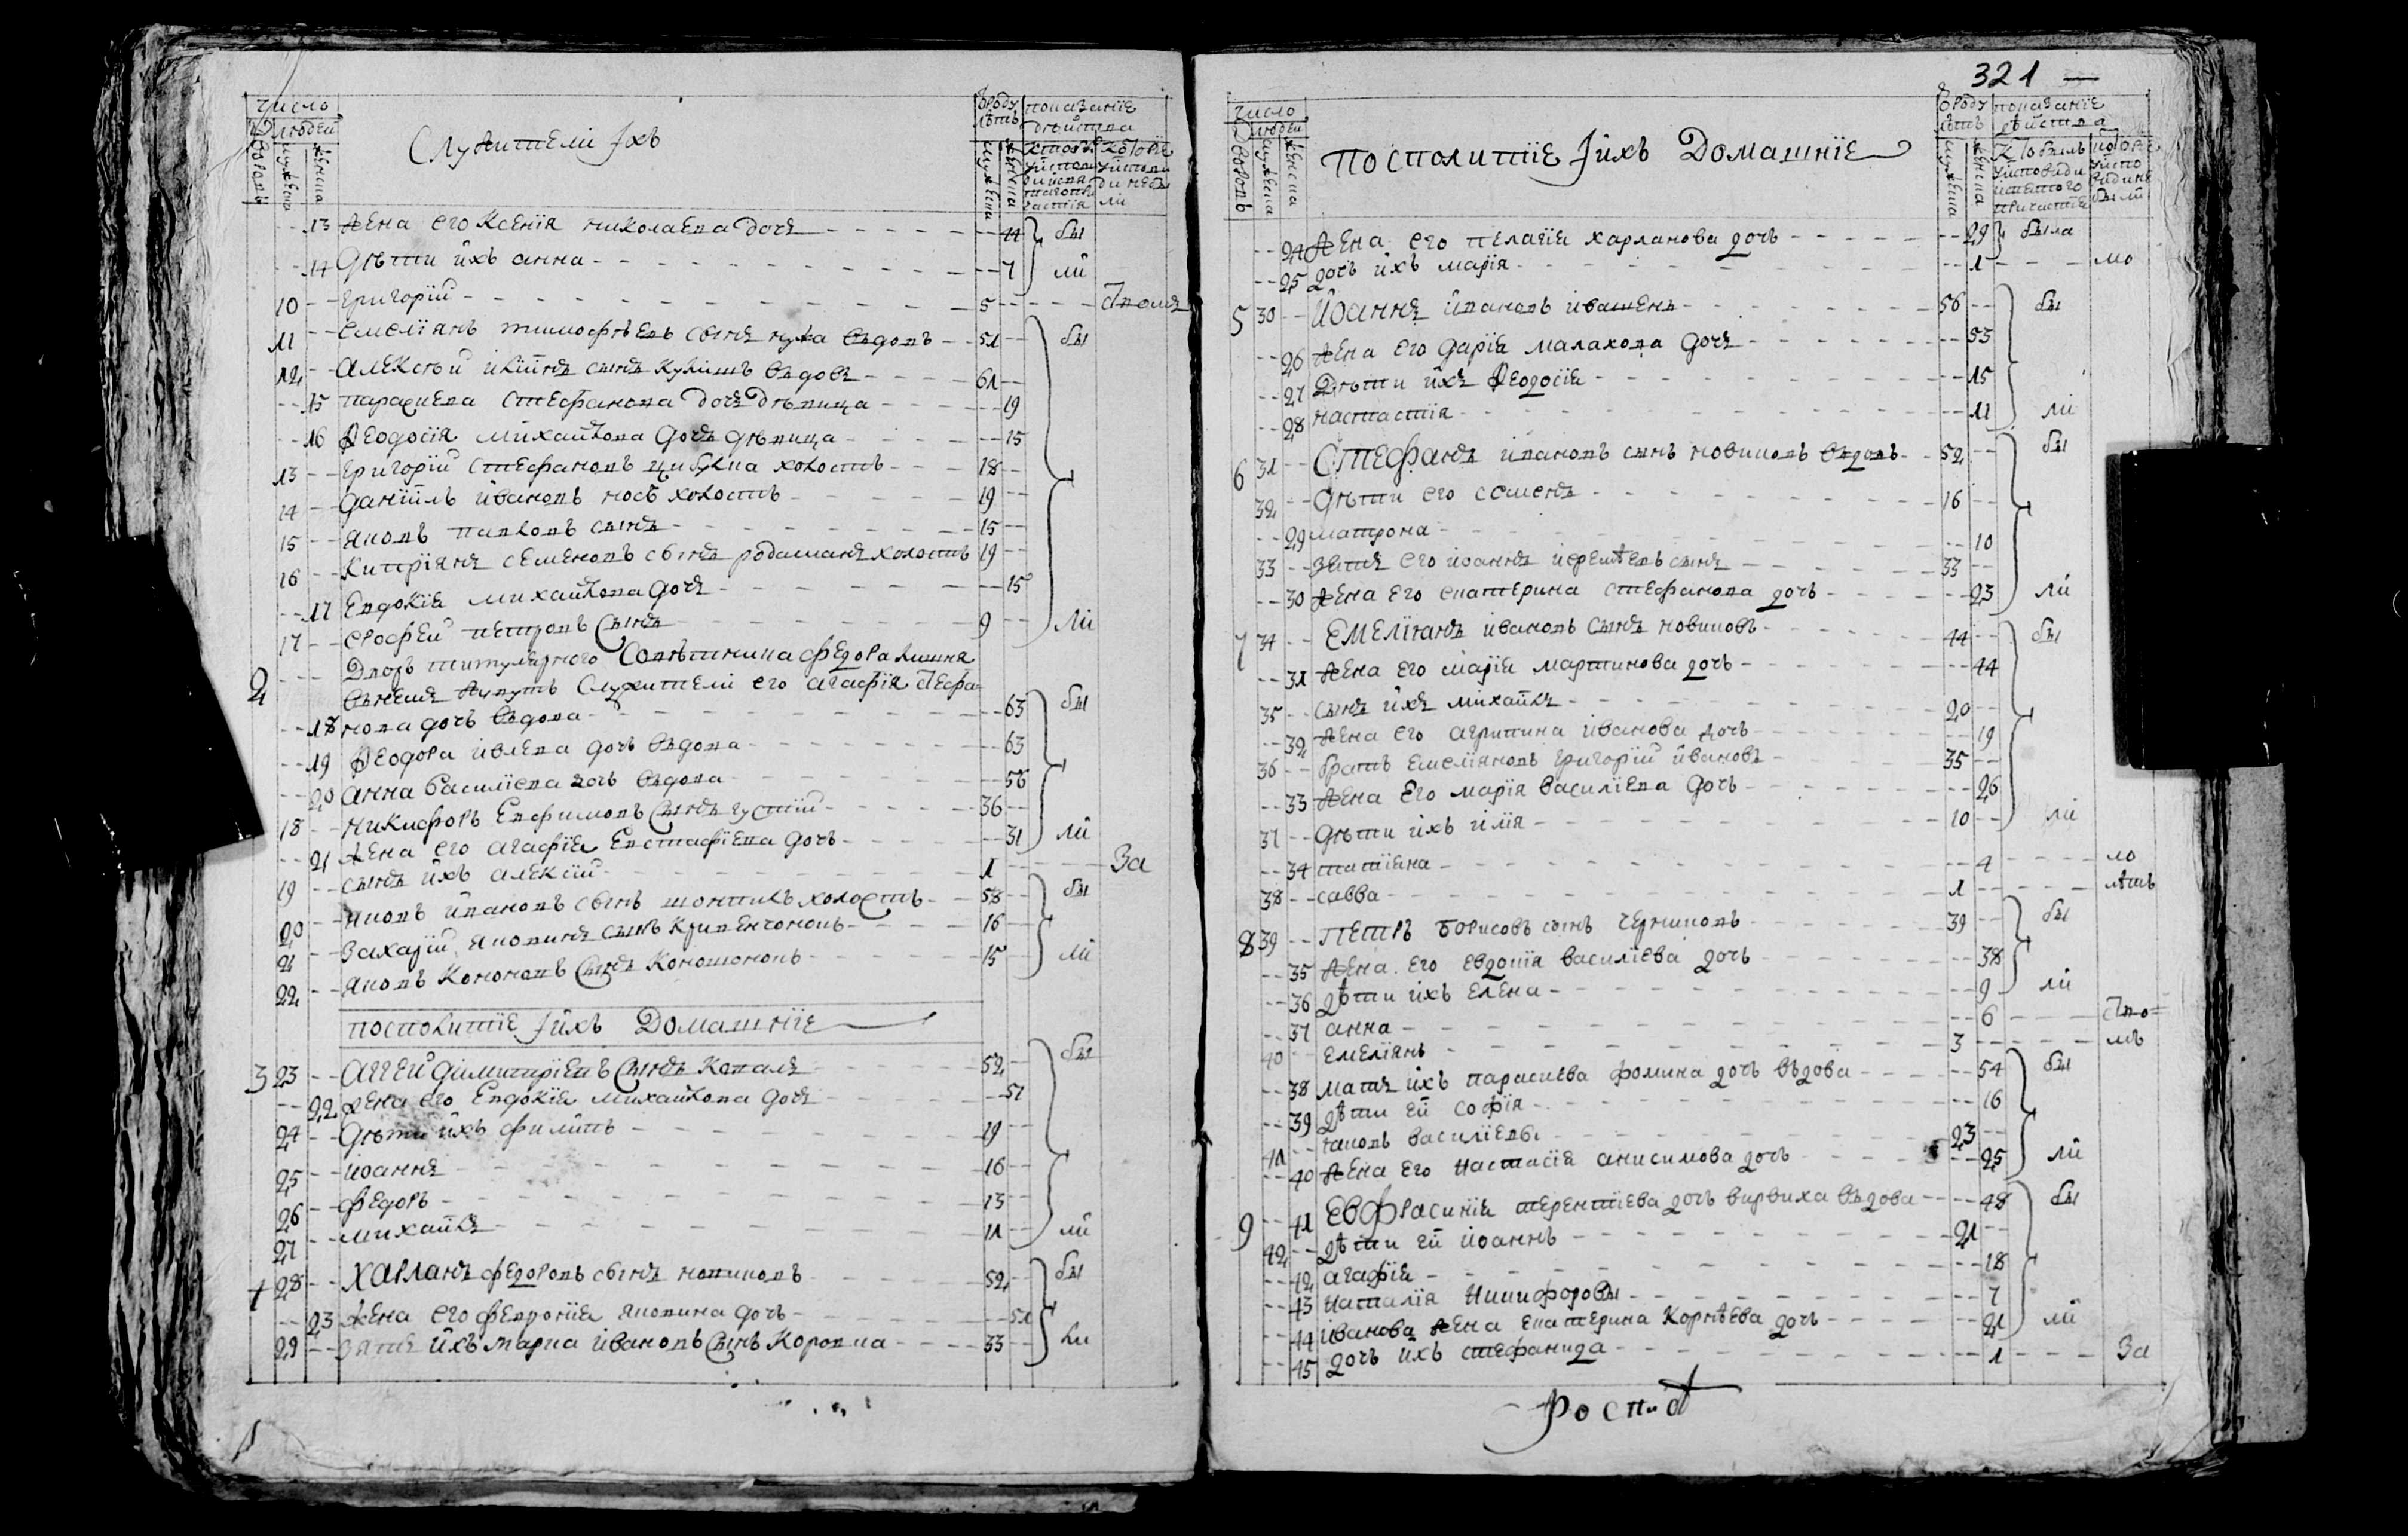 Число
людей
Служители Ихъ
Ѿроду лѣтъ
показанїе дѣйства
--13 Жена его Ксенїя николаева дочь 44 бы
--14 Дѣти ихъ анна 7 ли
10-- григорїй 5
11-- емелїянъ тимофѣевъ сынъ вдовъ 51 бы
12-- алексѣй сынъ вдовъ 61
--15 параскева стефанова дочь дѣвица 19
--16 Ѳеодосїя михайлова дочь дѣвица 15
13-- григорїй стефановъ цибулка холостъ 18
14-- данїилъ ивановъ носъ холостъ 19
15-- яковъ павловъ сынъ 15
16-- Кипрїянъ семеновъ сынъ холостъ 19
--17 Евдокїя михайлова дочь 15
17-- ерофей петровъ сынъ 9 ли
2 Дворъ титулярного Совѣтника федора
Служители его агафїя стефа
--18 нова дочь вдова 63 бы
--19 Ѳеодора дочь вдова 63
--20 анна василїева дочь вдова 56
18-- никифоръ Евфимовъ сынъ густий 36
--21 Жена его агафїя Евстафїева дочь 31 ли
19-- сынъ ихъ алексїй 1 За
20-- яковъ ивановъ сынъ холостъ 58 бы
21-- Захарїй яковинъ сынъ 16
22-- яковъ Кононовъ сынъ 15 ли
посполитїе Ихъ Домашнїе
3 23-- аггей димитрїевъ сынъ Коваль 52 бы
--22 Жена его Евдокїя михайлова дочь 51
24-- Дѣти ихъ филипъ 19
25-- иоаннъ 16
26-- федоръ 13
27-- михаилъ 11 ли
4 28-- харланъ федоровъ сынъ новиковъ 52 бы
--23 Жена его феврония яковина дочь 51
29-- зять ихъ марко ивановъ сынъ 33 ли
321
Число
людей
посполитїе Ихъ Домашнїе
Ѿроду лѣтъ
показанїе дѣйства
--24 Жена его пелагїя харланова дочь 29 была
--25 дочь ихъ марїя 1 мо
5 30-- Иоаннъ ивановъ 56 бы
--26 Жена его дарїя малахова дочь 53
--27 Дѣти ихъ Ѳеодосїя 15
--28 настасїя 11 ли
6 31-- Стефанъ ивановъ сынъ новиковъ вдовъ 52 бы
32-- Дѣти его семенъ 16
--29 матрона 10
33-- зять его иоаннъ сынъ 33
--30 Жена его екатерина стефанова дочь 23 ли
7 34-- Емелїянъ ивановъ сынъ новиковъ 44 бы
--31 Жена его марїя мартинова дочь 44
35-- сынъ ихъ михаилъ 20
--32 Жена его агрипина иванова дочь 19
36-- братъ емелїяновъ григорїй ивановъ 35
--33 Жена его марїя василїева дочь 26
37-- Дѣти ихъ илїя 10 ли
--34 татїана 4 мо
38-- савва 1 лѣтъ
8 39-- петръ борисовъ сынъ 39 бы
--35 Жена его евдокїя василїева дочь 38
--36 Дѣти ихъ елена 9 ли
--37 анна 6
40-- емелїянъ 3
--38 мать ихъ параскева фомина дочь вдова 54 бы
--39 Дѣти ей софїя 16
41-- яковъ василїевы 23
--40 Жена его настасїя анисимова дочь 25 ли
9 --41 Евфрасинїя терентїева дочь вдова 48 бы
42-- Дѣти ей иоаннъ 21
--42 агафїя 18
--43 наталїя никифоровы 7
--44 иванова Жена екатерина Корнѣева дочь 21 ли
--45 дочь ихъ стефанида 1 За